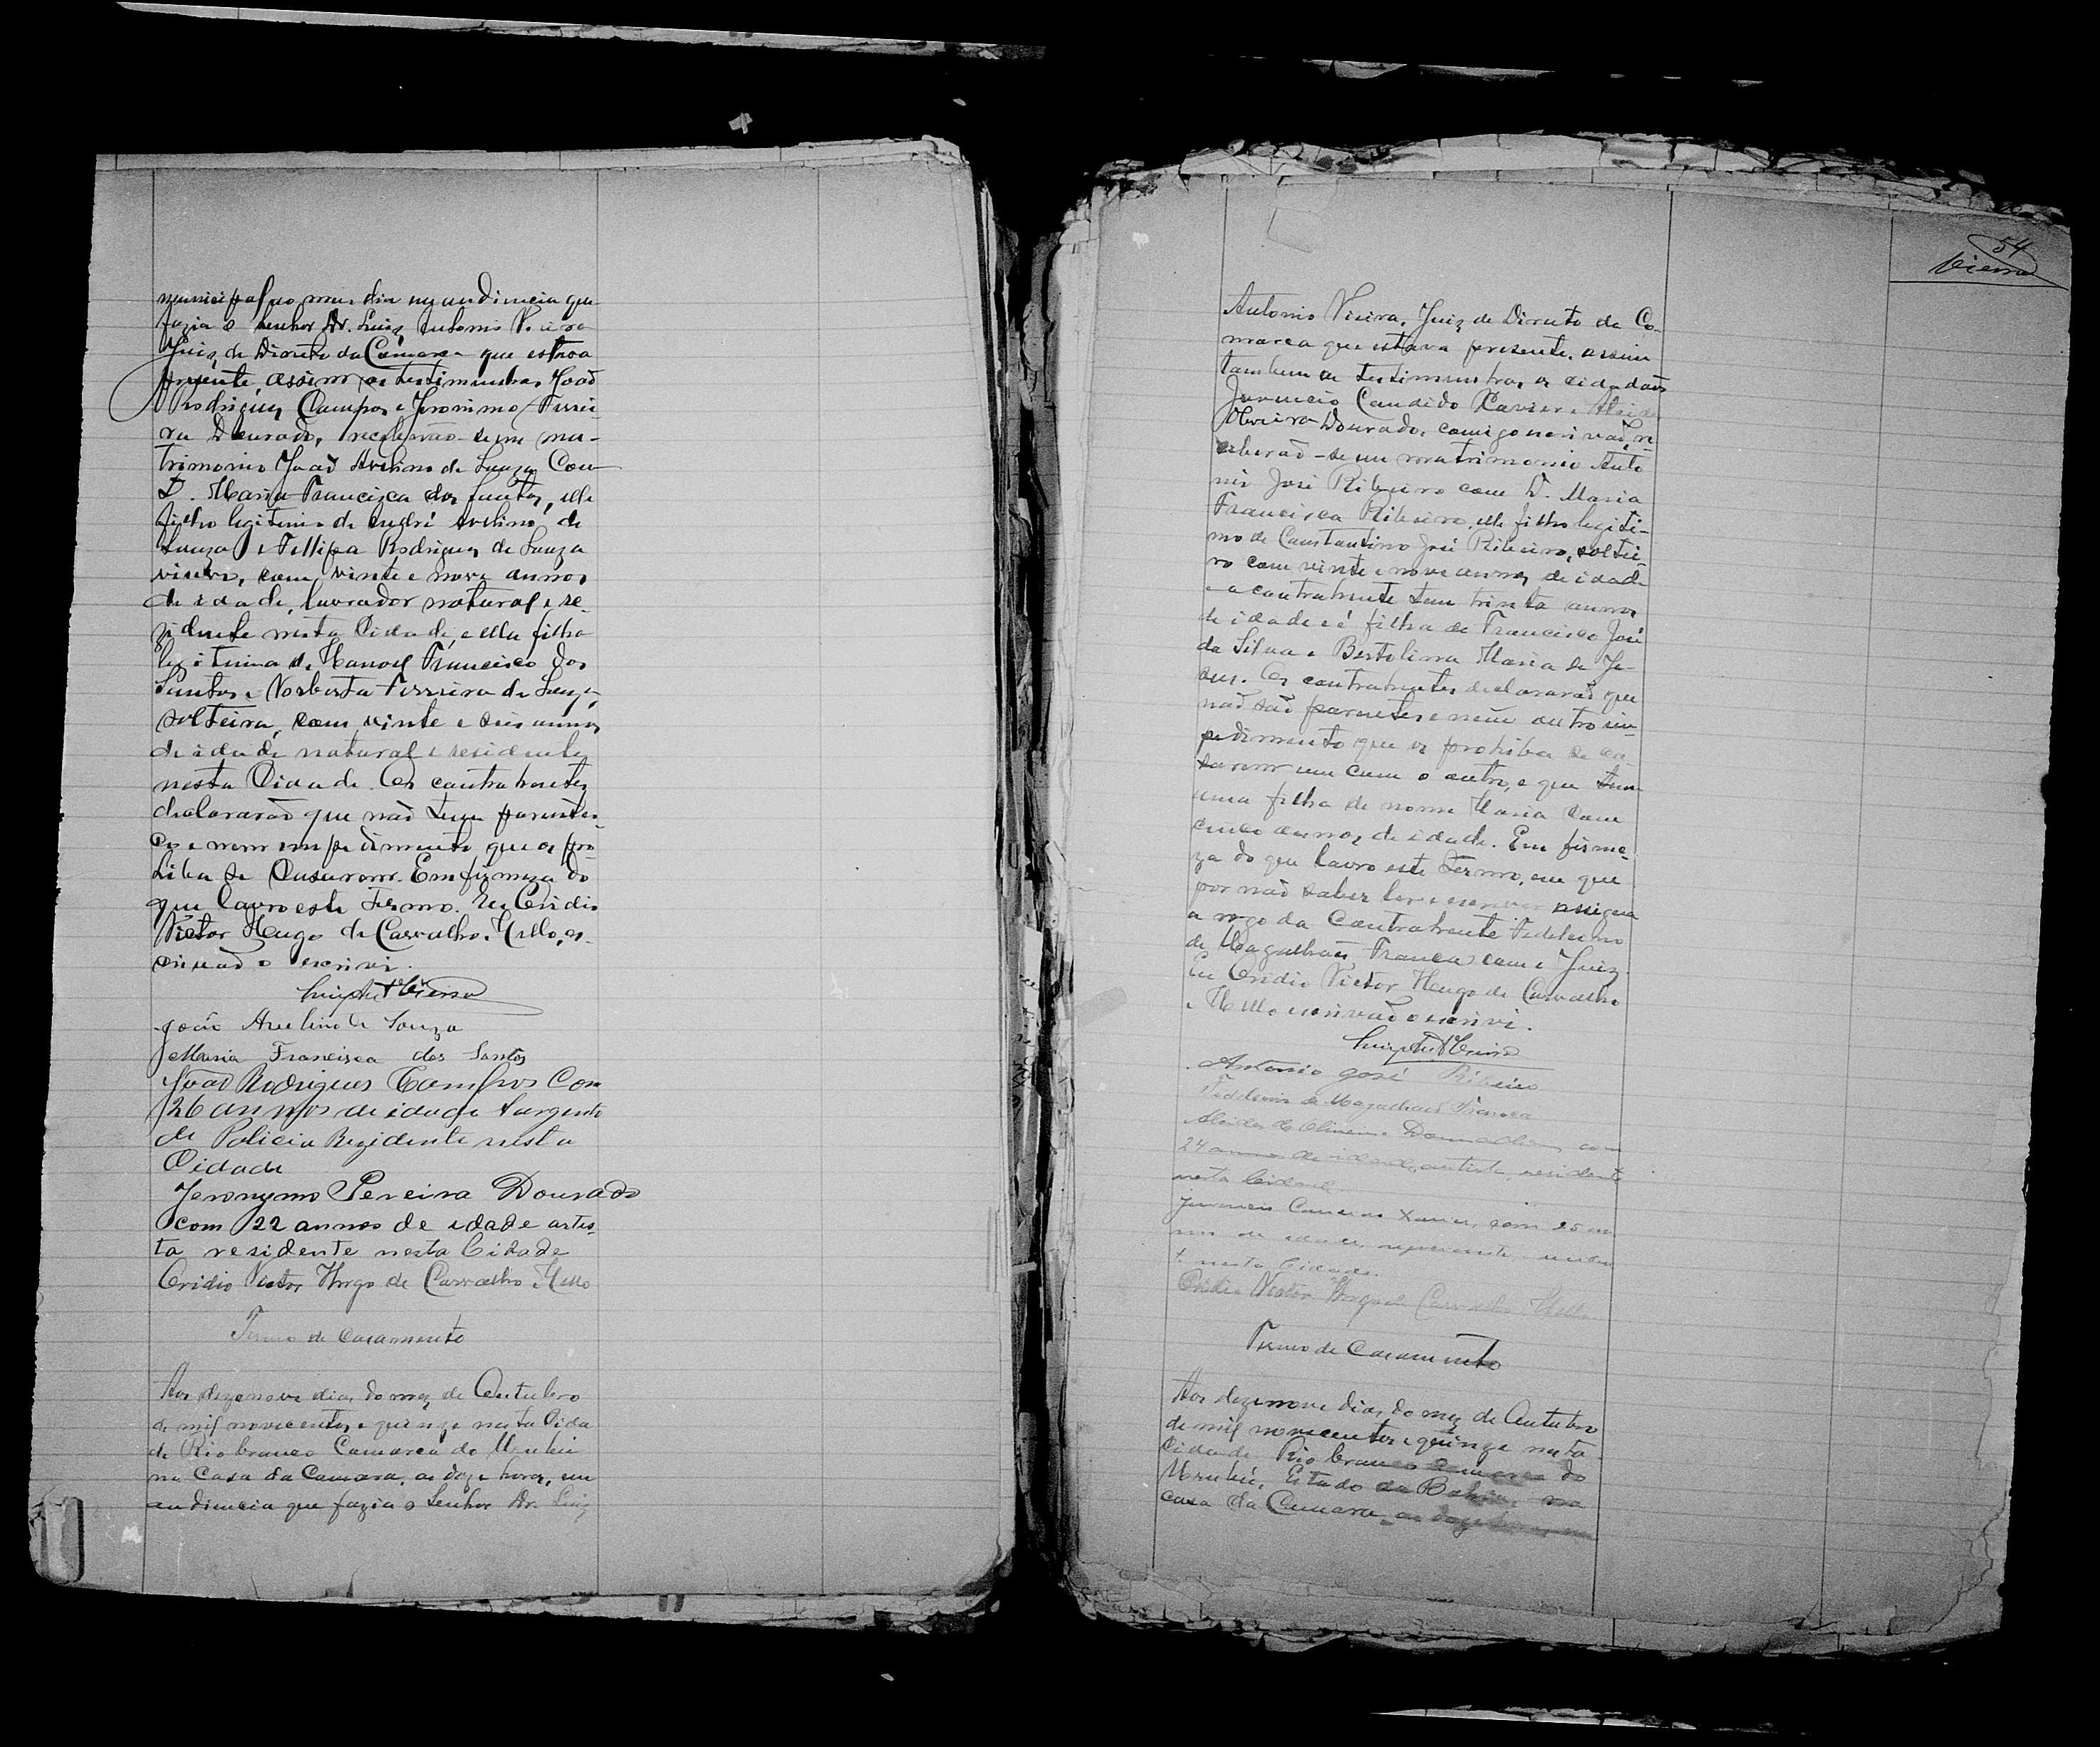 municipal ao meu dia em audiencia que
fazia o Senhor Dr. Luiz Antonio Vieira
Juiz de Direito da Camarca que estava
presente, assim as testimunhas Joaõ
Rodrigues Campos e Jeronimo Perei-
ra Dourado, receberão-se em ma-
trimonio Joaõ Avelino de Souza Com
D. Maria Francisca dos Santos, elle
filho legitimo de André Avelino de
Souza e Fellipa Rodrigues de Souza
viuvo, com vinte e nove annos
de idade, lavrador natural e re-
zidente nesta Cidade, e ella filha
legitima de Manoel Francisco dos
Santos e Norberta Ferreira de Souza,
solteira, com vinte e seis annos
de idade natural e residente
nesta Cidade. Os contrahentes
declararaõ que naõ tem parentes-
co e nem impedimento que os pro-
hiba de Casarem. Em firmeza do
que lavro este Termo. Eu Ovidio
Victor Hugo de Carvalho e Mello, es-
crivaõ o escrivi.
Luiz Ant Vieira
João Avelino de Souza
Maria Francisca dos Santos
Joaõ Rodrigues Campos Com
26 annos de idade Sargento
de Policia Rezidente nesta
Cidade
Jeronymo Pereira Dourado
com 22 annos de idade artis-
ta residente nesta Cidade
Ovidio Victor Hugo de Carvalho e Mello
Termo de Casamento
Aos dezenove dias do mez de Outubro
de mil novecentos e quinze nesta Cida
de Rio branco Camarca do Urubú
na Casa da Camara, as doze horas, em
audiencia que fazia o Senhor Dr. Luiz
54
Vieira
Antonio Vieira, Juiz de Direito da Co-
marca que estava presente, assim
tambem as testimunhas os cidadaõs
Juvencio Candido Xavier e Alcides
Oliveira Dourado, comigo escrivaõ, re-
ceberaõ-se em matrimonio Anto
nio José Ribeiro com D. Maria
Francisca Ribeiro, elle filho legiti-
mo de Constantino José Ribeiro, soltei-
ro com vinte e nove annos de idade
e a contrahente tem trinta annos
de idade e é filha de Francisco José
da Silva e Bertolina Maria de Je-
sus. Os contrahentes declararaõ que
naõ saõ parentes e nem outro im-
pedimento que os prohiba de ca-
sarem um com o outro, e que tem
uma filha de nome Maria com
cinco annos de idade. Em firme-
za do que lavro este Termo, em que
por naõ saber ler e escrever assigna
a rogo da Contrahente Fidelcino
de Magalhaes Franca com o Juiz.
Eu Ovidio Victor Hugo de Carvalho
e Mello escrivaõ o escrivi.
Luiz Ant Vieira
Antonio José Ribeiro
Fidelcino de Magalhaes Franca
Alcides de Oliveira Dourado com
24 annos de idade, artista, residente
nesta Cidade.
Juvencio Candido Xavier, com 25 an
nos de idade, negociante, residen
te nesta Cidade.
Ovidio Victor Hugo de Carvalho e Mello
Termo de Casamento
Aos dezenove dias do mez de Outubro
de mil novecentos e quinze nesta
Cidade Rio branco Comarca do
Urubú, Estado da Bahia, na
casa da Camara, as doze horas em